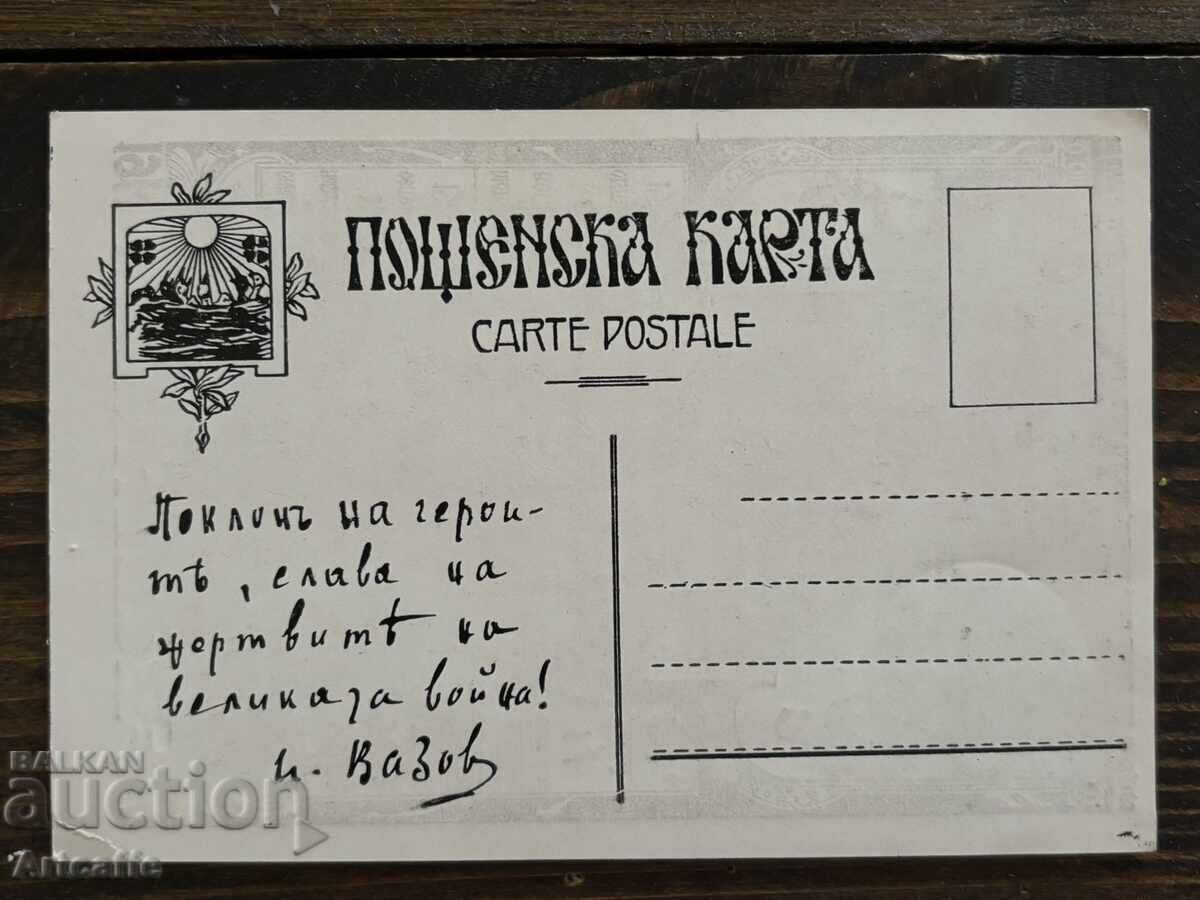 ПОЩЕНСКА КАРТА
CARTE POSTALE
Поклинъ на герои-
тѣ, слава на
жертвитѣ на
великата война!
И. Вазов
BALKAN
auction
Artcaffe